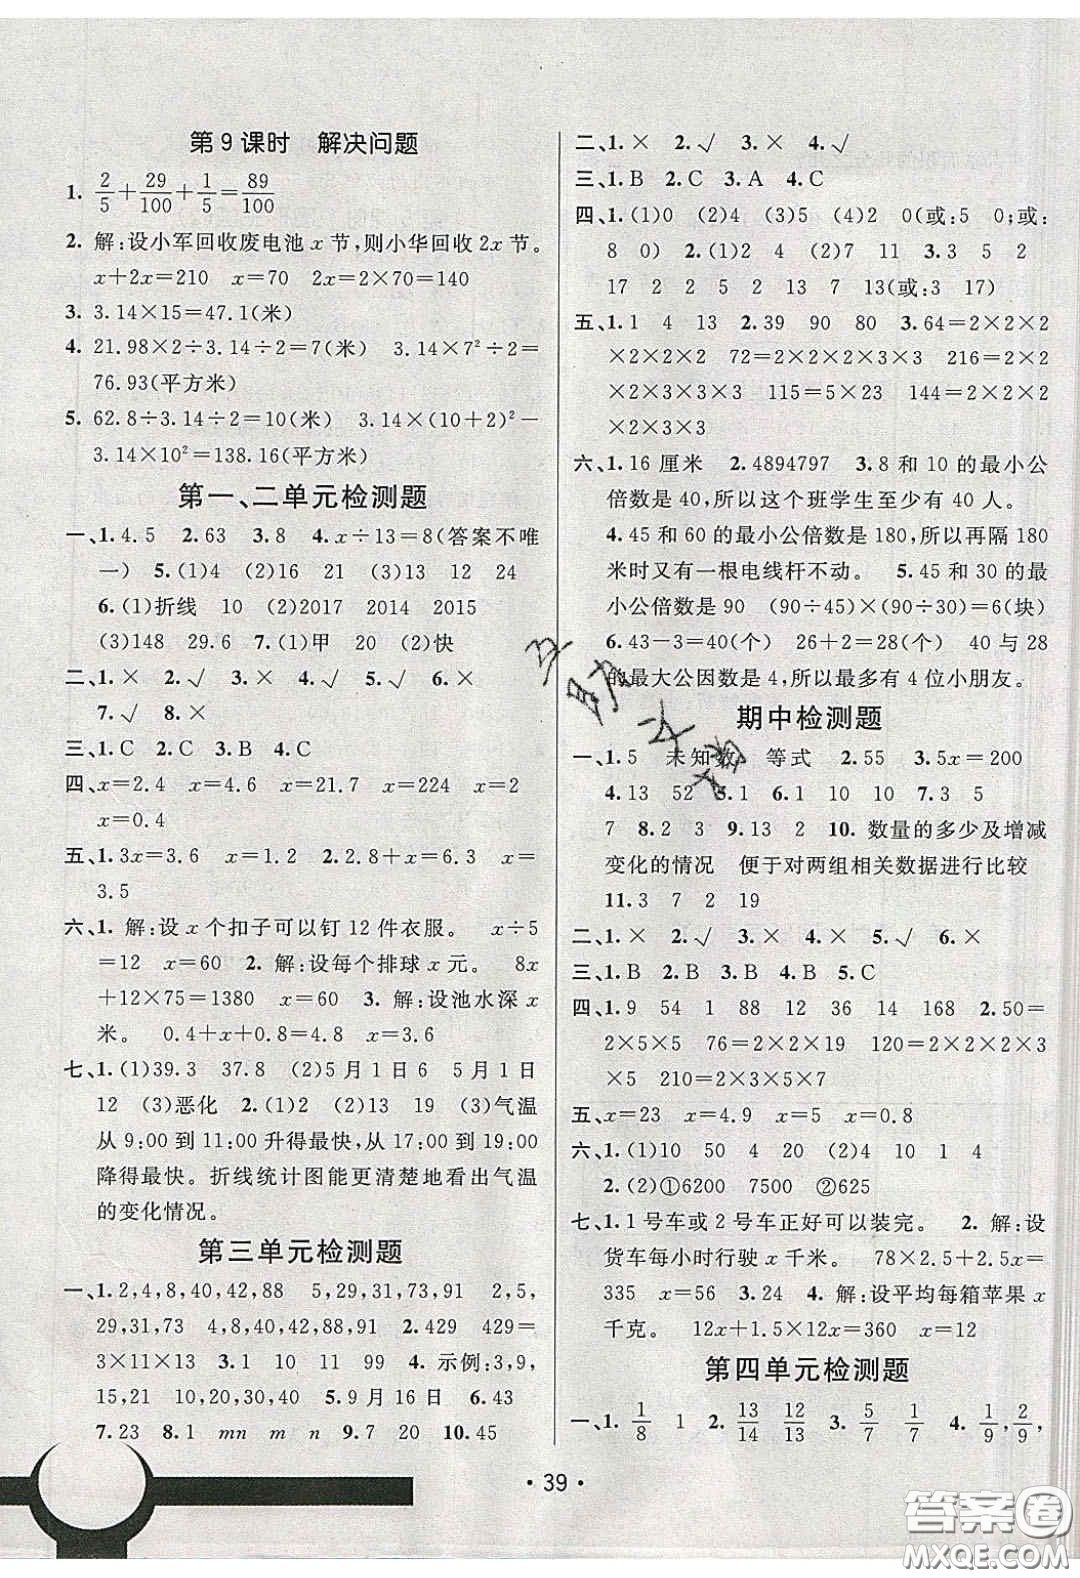 第9课时　解决问题
1. 2/5+29/100+1/5=89/100
2. 解:设小军回收废电池 x 节,则小华回收 2x 节。
x+2x=210　x=70　2x=2×70=140
3. 3.14×15=47.1(米)
4. 21.98×2÷3.14÷2=7(米)　3.14×7²÷2=
76.93(平方米)
5. 62.8÷3.14÷2=10(米)　3.14×(10+2)²－
3.14×10²=138.16(平方米)
第一、二单元检测题
一、1. 4.5　2. 63　3. 8　4. x÷13=8(答案不唯
一)　5. (1)4　(2)16　21　(3)13　12　24
6. (1)折线　10　(2)2017　2014　2015
(3)148　29.6　7. (1)甲　20　(2)快
二、1. ×　2. √　3. ×　4. √　5. ×　6. ×
7. √　8. ×
三、1. C　2. C　3. B　4. C
四、x=2.4　x=16　x=21.7　x=224　x=2
x=0.4
五、1. 3x=3.6　x=1.2　2. 2.8+x=6.3　x=
3.5
六、1. 解:设 x 个扣子可以钉 12 件衣服。　x÷5
=12　x=60　2. 解:设每个排球 x 元。　8x
+12×75=1380　x=60　3. 解:设池水深 x
米。　0.4+x+0.8=4.8　x=3.6
七、1. (1)39.3　37.8　(2)5 月 1 日 6　5 月 1 日
12　(3)恶化　2. (1)2　(2)13　19　(3)气温
从 9:00 到 11:00 升得最快,从 17:00 到 19:00
降得最快。折线统计图能更清楚地看出气温
的变化情况。
第三单元检测题
一、1. 2,4,8,40,42,88　5,29,31,73,91　2,5,
29,31,73　4,8,40,42,88,91　2. 429　429=
3×11×13　3. 1　10　11　99　4. 示例:3,9,
15,21　18,20,30,50　5. 9 月 16 日　6. 43
7. 23　8. 1　mn　m　n　9. 7　20　10. 45
二、1. ×　2. √　3. ×　4. √
三、1. B　2. C　3. A　4. C
四、1. (1)0　(2)4　(3)5　(4)2　0(或:5　0;或:
8　0)　2. (1)2　4　(2)7　11　3. 3　5　2
17　2　2　5　2　13　7　13(或:3　17)
五、1. 1　4　13　2. 39　90　80　3. 64=2×2×2
×2×2×2　72=2×2×2×3×3　216=2×2
×2×3×3×3　115=5×23　144=2×2×2
×2×3×3
六、1. 16 厘米　2. 4894797　3. 8 和 10 的最小公
倍数是 40,所以这个班学生至少有 40 人。
4. 45 和 60 的最小公倍数是 180,所以再隔 180
米时又有一根电线杆不动。　5. 45 和 30 的最
小公倍数是 90　(90÷45)×(90÷30)=6(块)
6. 43－3=40(个)　26+2=28(个)　40 与 28
的最大公因数是 4,所以最多有 4 位小朋友。
期中检测题
一、1. 5　未知数　等式　2. 55　3. 5x=200
4. 13　52　5. 1　6. 1　10　10　7. 3　5
7　8. 2　3　9. 13　2　10. 数量的多少及增减
变化的情况　便于对两组相关数据进行比较
11. 3　7　2　19
二、1. ×　2. √　3. ×　4. ×　5. √　6. ×
三、1. B　2. B　3. B　4. B　5. C
四、1. 9　54　1　88　12　36　14　168　2. 50=
2×5×5　76=2×2×19　120=2×2×2×3
×5　210=2×3×5×7
五、x=23　x=4.9　x=5　x=0.8
六、1. (1)10　50　4　20　(2)4　10　1　4
2. (2)①6200　7500　②625
七、1. 1 号车或 2 号车正好可以装完。　2. 解:设
货车每小时行驶 x 千米。　78×2.5+2.5x=
335　x=56　3. 24　4. 解:设平均每箱苹果 x
千克。　12x+1.5×12=360　x=12
第四单元检测题
一、1. 1/8　1　2. 13/14　12/13　3. 5/7　1/7　4. 1/9, 2/9,
· 39 ·
答案圈
MXQE.COM